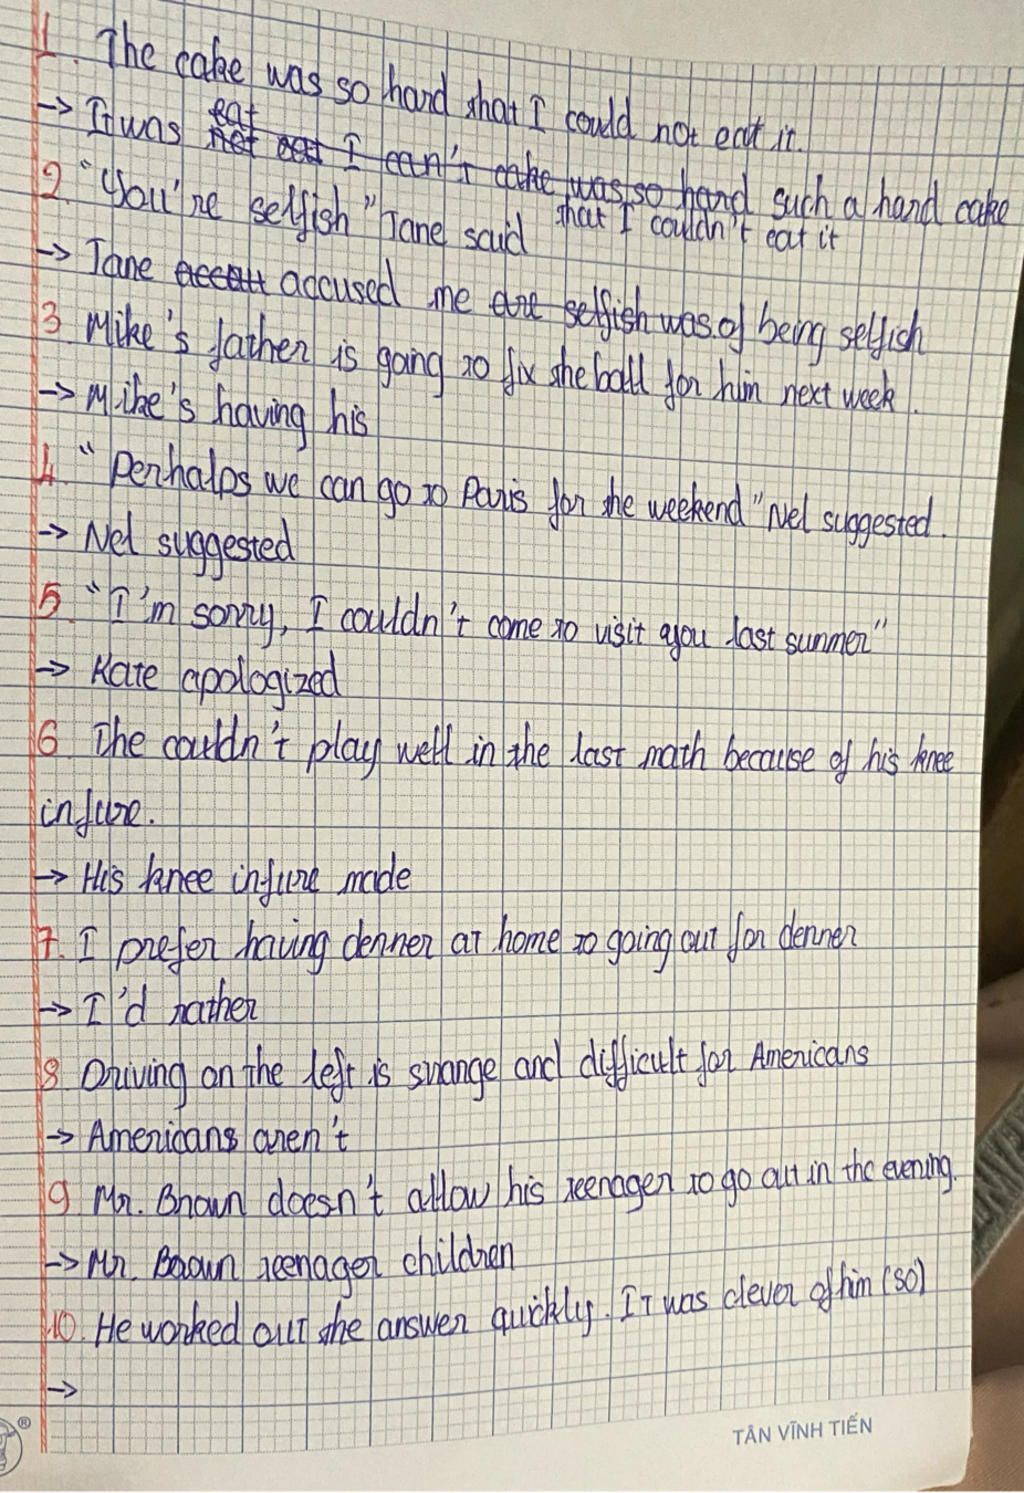 1. The cake was so hard that I could not eat it.
→ It was eat not eat I can't cake was so hard such a hard cake
that I couldn't eat it
2. "You're selfish" Jane said
→ Jane accused me are selfish was of being selfish
3. Mike's father is going to fix the ball for him next week.
→ Mike's having his
4. "Perhalps we can go to Paris for the weekend" Nel suggested.
→ Nel suggested
5. "I'm sorry, I couldn't come to visit you last summer"
→ Kate apologized
6. The couldn't play well in the last math because of his knee
infure.
→ His knee infure made
7. I prefer having denner at home to going out for denner
→ I'd rather
8. Driving on the left is strange and difficult for Americans
→ Americans aren't
9. Mr. Brown doesn't allow his teenager to go out in the evening.
→ Mr. Brown teenager children
10. He worked out the answer quickly. It was clever of him (so)
→
TÂN VĨNH TIẾN
®